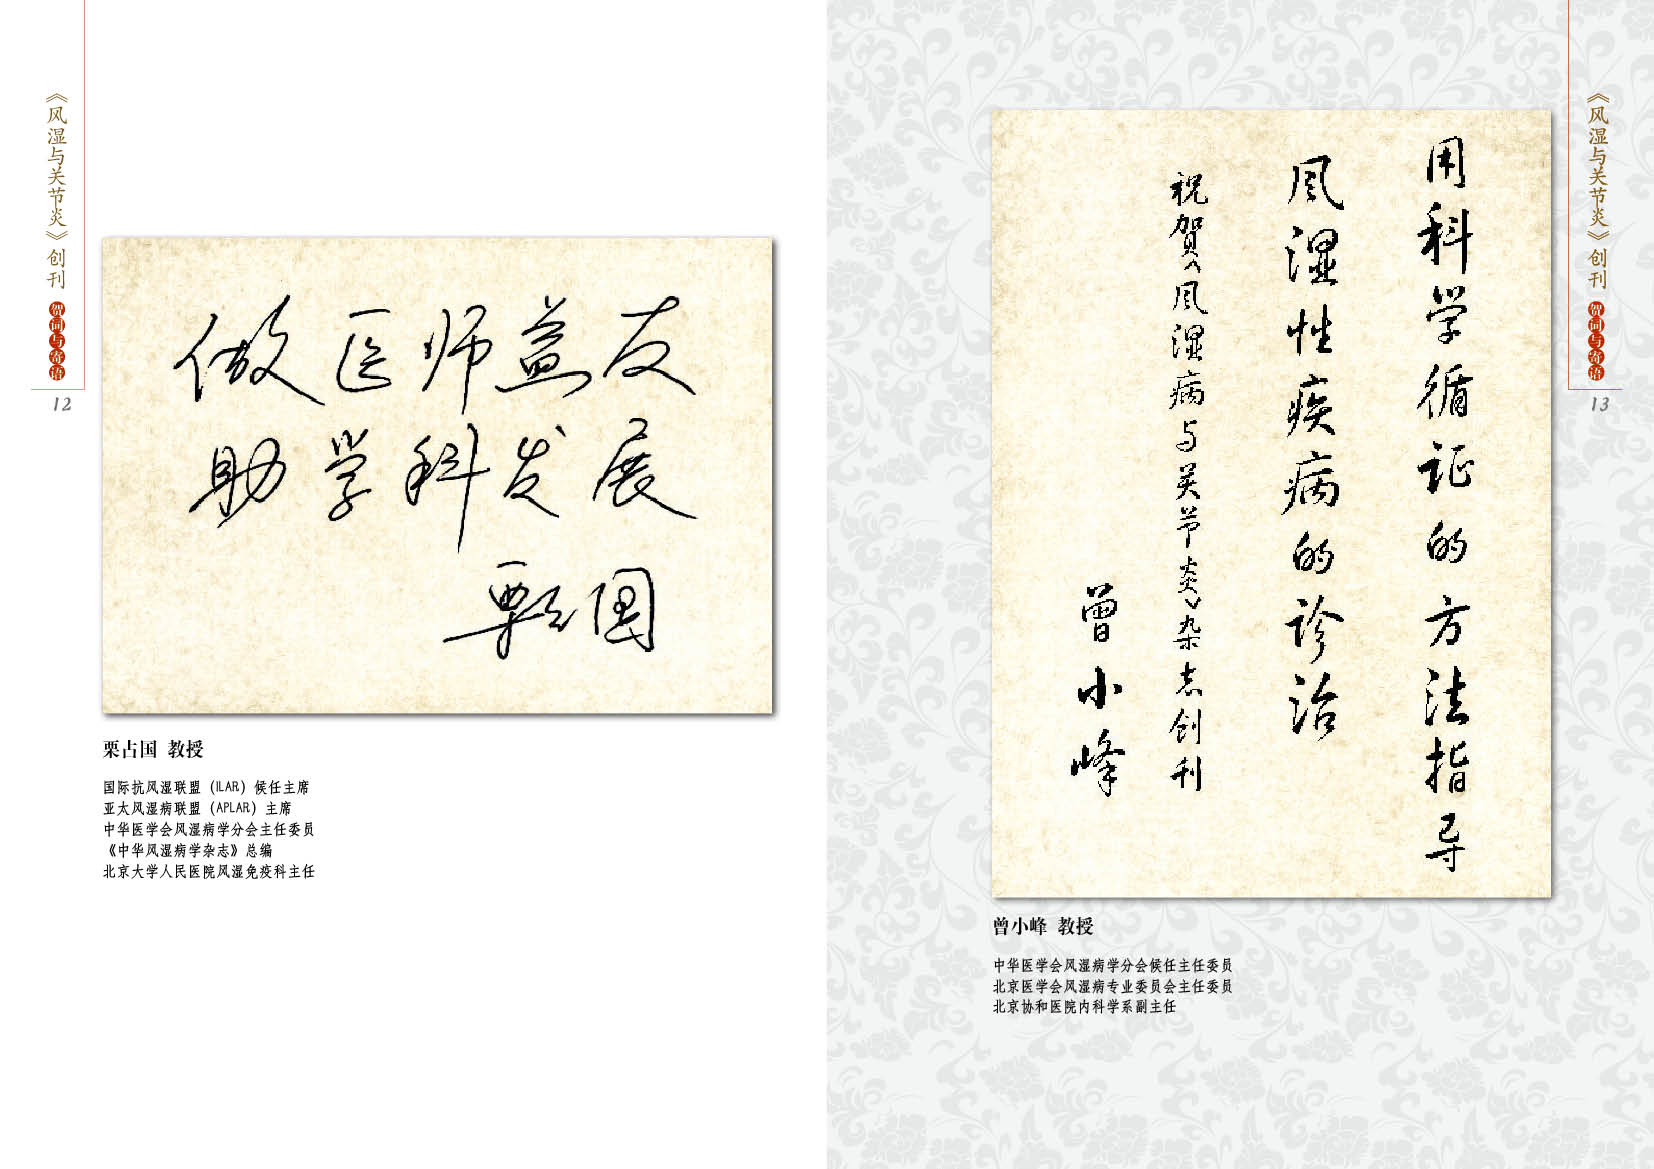 《风湿与关节炎》创刊
贺词与寄语
12
做医师益友
助学科发展
栗占国
栗占国 教授
国际抗风湿联盟（ILAR）候任主席
亚太风湿病联盟（APLAR）主席
中华医学会风湿病学分会主任委员
《中华风湿病学杂志》总编
北京大学人民医院风湿免疫科主任
《风湿与关节炎》创刊
贺词与寄语
13
用科学循证的方法指导
风湿性疾病的诊治
祝贺《风湿病与关节炎》杂志创刊
曾小峰
曾小峰 教授
中华医学会风湿病学分会候任主任委员
北京医学会风湿病专业委员会主任委员
北京协和医院内科学系副主任